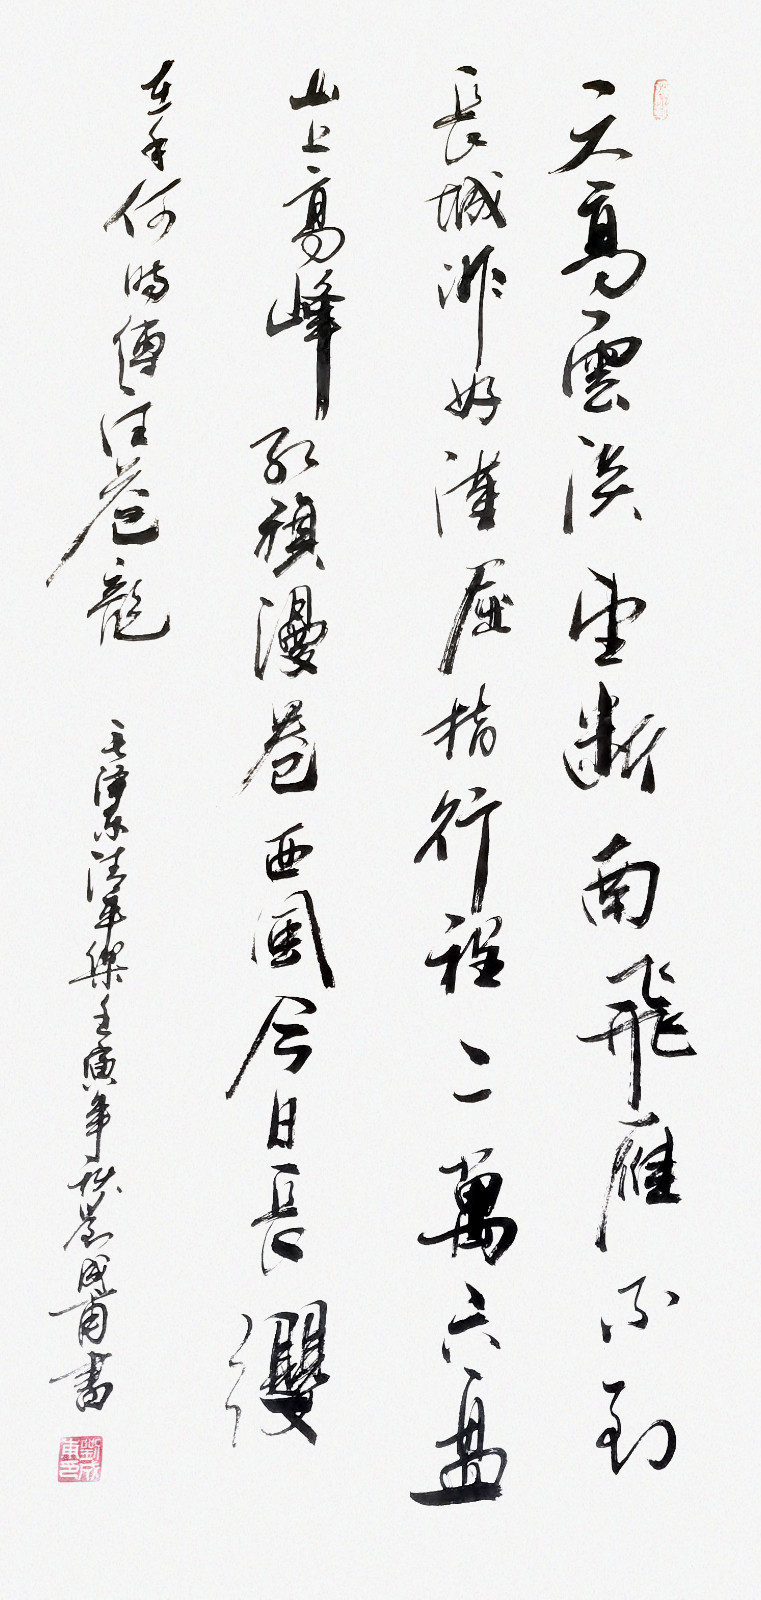 天高雲淡望斷南飛雁不到
長城非好漢屈指行程二萬六盤
山上高峰紅旗漫卷西風今日長纓
在手何時縛住蒼龍
毛澤東清平樂壬寅年秋晨成甫書